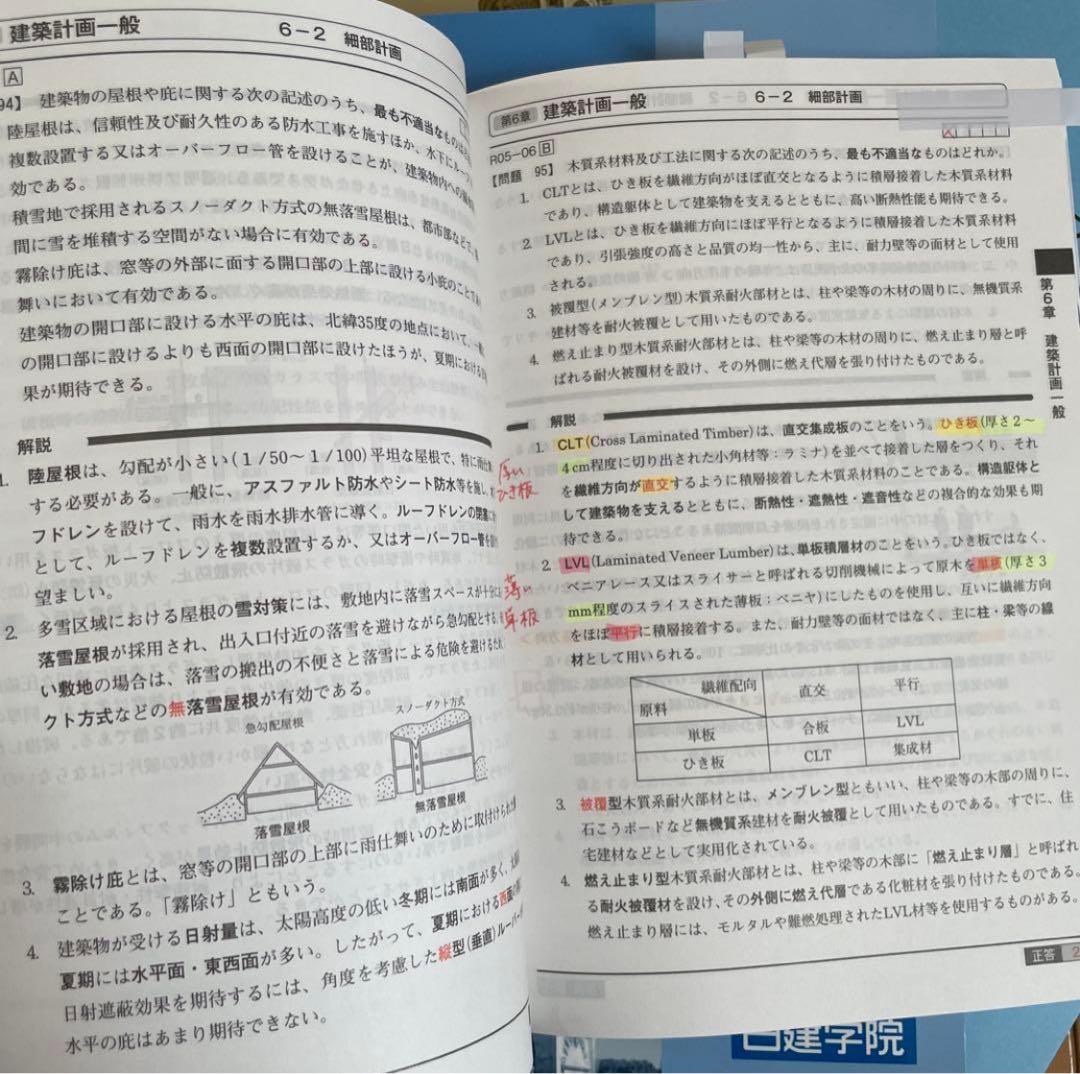 建築計画一般
6－2　細部計画
A
94】　建築物の屋根や庇に関する次の記述のうち、最も不適当な
陸屋根は、信頼性及び耐久性のある防水工事を施すほか、水下に
複数設置する又はオーバーフロー管を設けることが、建築物内への
効である。
積雪地で採用されるスノーダクト方式の無落雪屋根は、都市部など
間に雪を堆積する空間がない場合に有効である。
霧除け庇は、窓等の外部に面する開口部の上部に設ける小庇のことで
舞いにおいて有効である。
建築物の開口部に設ける水平の庇は、北緯35度の地点において、
の開口部に設けるよりも西面の開口部に設けたほうが、夏期における
果が期待できる。
解説
1.　陸屋根は、勾配が小さい(1/50～1/100)平坦な屋根で、特に雨仕
する必要がある。一般に、アスファルト防水やシート防水等を施し、
フドレンを設けて、雨水を雨水排水管に導く。ルーフドレンの閉塞
として、ルーフドレンを複数設置するか、又はオーバーフロー管を
望ましい。
2.　多雪区域における屋根の雪対策には、敷地内に落雪スペースが十分に
落雪屋根が採用され、出入口付近の落雪を避けながら急勾配とする。
い敷地の場合は、落雪の搬出の不便さと落雪による危険を避けるため
クト方式などの無落雪屋根が有効である。
急勾配屋根
スノーダクト方式
落雪屋根
無落雪屋根
3.　霧除け庇とは、窓等の開口部の上部に雨仕舞いのために取付けられた
ことである。「霧除け」ともいう。
4.　建築物が受ける日射量は、太陽高度の低い冬期には南面が多く、
夏期には水平面・東西面が多い。したがって、夏期における西面の
日射遮蔽効果を期待するには、角度を考慮した縦型(垂直)ルーバー
水平の庇はあまり期待できない。
第6章　建築計画一般
6－2　細部計画
R05－06 B
【問題　95】　木質系材料及び工法に関する次の記述のうち、最も不適当なものはどれか。
1.　CLTとは、ひき板を繊維方向がほぼ直交となるように積層接着した木質系材料
であり、構造躯体として建築物を支えるとともに、高い断熱性能も期待できる。
2.　LVLとは、ひき板を繊維方向にほぼ平行となるように積層接着した木質系材料
であり、引張強度の高さと品質の均一性から、主に、耐力壁等の面材として使用
される。
3.　被覆型(メンブレン型)木質系耐火部材とは、柱や梁等の木材の周りに、無機質系
建材等を耐火被覆として用いたものである。
4.　燃え止まり型木質系耐火部材とは、柱や梁等の木材の周りに、燃え止まり層と呼
ばれる耐火被覆材を設け、その外側に燃え代層を張り付けたものである。
解説
1.　CLT(Cross Laminated Timber)は、直交集成板のことをいう。ひき板(厚さ2～
4cm程度に切り出された小角材等：ラミナ)を並べて接着した層をつくり、それ
を繊維方向が直交するように積層接着した木質系材料のことである。構造躯体と
して建築物を支えるとともに、断熱性・遮熱性・遮音性などの複合的な効果も期
待できる。
厚い
ひき板
2.　LVL(Laminated Veneer Lumber)は、単板積層材のことをいう。ひき板ではなく、
ベニアレース又はスライサーと呼ばれる切削機械によって原木を単板(厚さ3
mm程度のスライスされた薄板：ベニヤ)にしたものを使用し、互いに繊維方向
をほぼ平行に積層接着する。また、耐力壁等の面材ではなく、主に柱・梁等の線
材として用いられる。
薄い
単板
繊維配向　直交　平行
原料
単板　合板　LVL
ひき板　CLT　集成材
3.　被覆型木質系耐火部材とは、メンブレン型ともいい、柱や梁等の木部の周りに、
石こうボードなど無機質系建材を耐火被覆として用いたものである。すでに、住
宅建材などとして実用化されている。
4.　燃え止まり型木質系耐火部材とは、柱や梁等の木部に「燃え止まり層」と呼ばれ
る耐火被覆材を設け、その外側に燃え代層である化粧材を張り付けたものである。
燃え止まり層には、モルタルや難燃処理されたLVL材等を使用するものがある。
正答　2
第6章　建築計画一般
日建学院